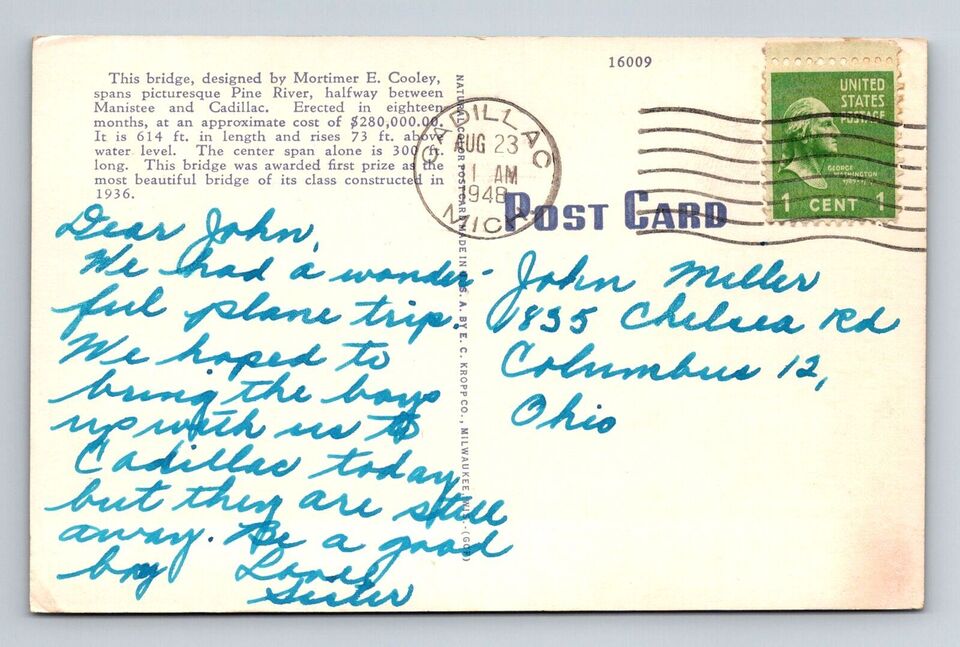 This bridge, designed by Mortimer E. Cooley,
spans picturesque Pine River, halfway between
Manistee and Cadillac. Erected in eighteen
months, at an approximate cost of $280,000.00.
It is 614 ft. in length and rises 73 ft. above
water level. The center span alone is 300 ft.
long. This bridge was awarded first prize as the
most beautiful bridge of its class constructed in
1936.
Dear John,
We had a wonder-
ful plane trip.
We hoped to
bring the boys
up with us to
Cadillac today
but they are still
away. Be a good
boy Love,
Sister
NATURAL COLOR POST CARD MADE IN U. S. A. BY E. C. KROPP CO., MILWAUKEE, WIS.-(GOR)
CADILLAC
AUG 23
11 AM
1948
MICH.
16009
UNITED
STATES
POSTAGE
GEORGE
WASHINGTON
1 CENT 1
POST CARD
John Miller
1835 Chelsea Rd
Columbus 12,
Ohio